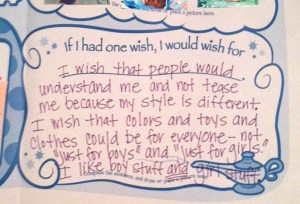 If I had one wish, I would wish for
I wish that people would
understand me and not tease
me because my style is different.
I wish that colors and toys and
clothes could be for everyone - not
"just for boys" and "just for girls."
I like boy stuff and girl stuff.